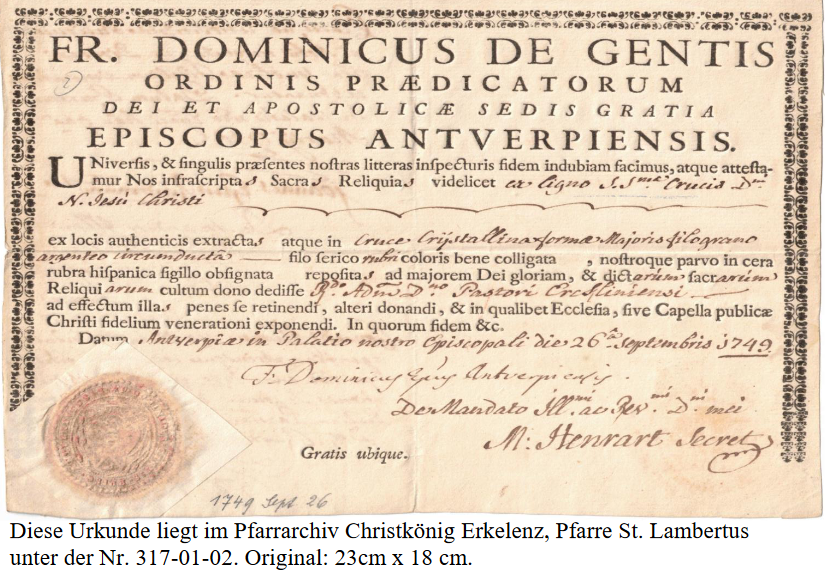 FR. DOMINICUS DE GENTIS
ORDINIS PRÆDICATORUM
DEI ET APOSTOLICÆ SEDIS GRATIA
EPISCOPUS ANTVERPIENSIS.
UNiversis, & singulis præsentes nostras litteras inspecturis fidem indubiam facimus, atque attestamur
Nos infrascriptas Sacras Reliquias videlicet ex ligno S.Smæ Crucis Dni
N. Jesu Christi
ex locis authenticis extractas atque in Cruce Cristallina formæ Majoris filograno
argenteo circumducta filo serico rubri coloris bene colligata, nostroque parvo in cera
rubra hispanica sigillo obsignata repositas ad majorem Dei gloriam, & dictarum sacrarum
Reliquiarum cultum dono dedisse Rdo Admdm Dno Pastori
ad effectum illas penes se retinendi, alteri donandi, & in qualibet Ecclesia, sive Capella publicæ
Christi fidelium venerationi exponendi. In quorum fidem &c.
Datum Antverpiæ in Palatio nostro Episcopali die 26ta Septembris 1749
Fr Dominicus Epus Antverpiensis.
De Mandato Illmi ac Revmi Dni mei
M: Henrart Secret
Gratis ubique.
1749 Sept. 26
Diese Urkunde liegt im Pfarrarchiv Christkönig Erkelenz, Pfarre St. Lambertus
unter der Nr. 317-01-02. Original: 23cm x 18 cm.